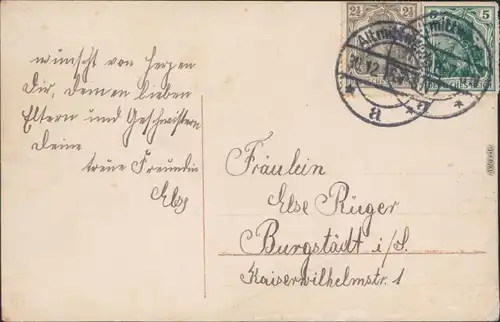 wünscht von Herzen
Dir, Deinen lieben
Eltern und Geschwistern
Deine
treue Freundin
Elsa
2½ 2½
5
Altmittweida
30.12.
* a *
Fräulein
Else Rüger
Burgstädt i/S.
Kaiserwilhelmstr. 1